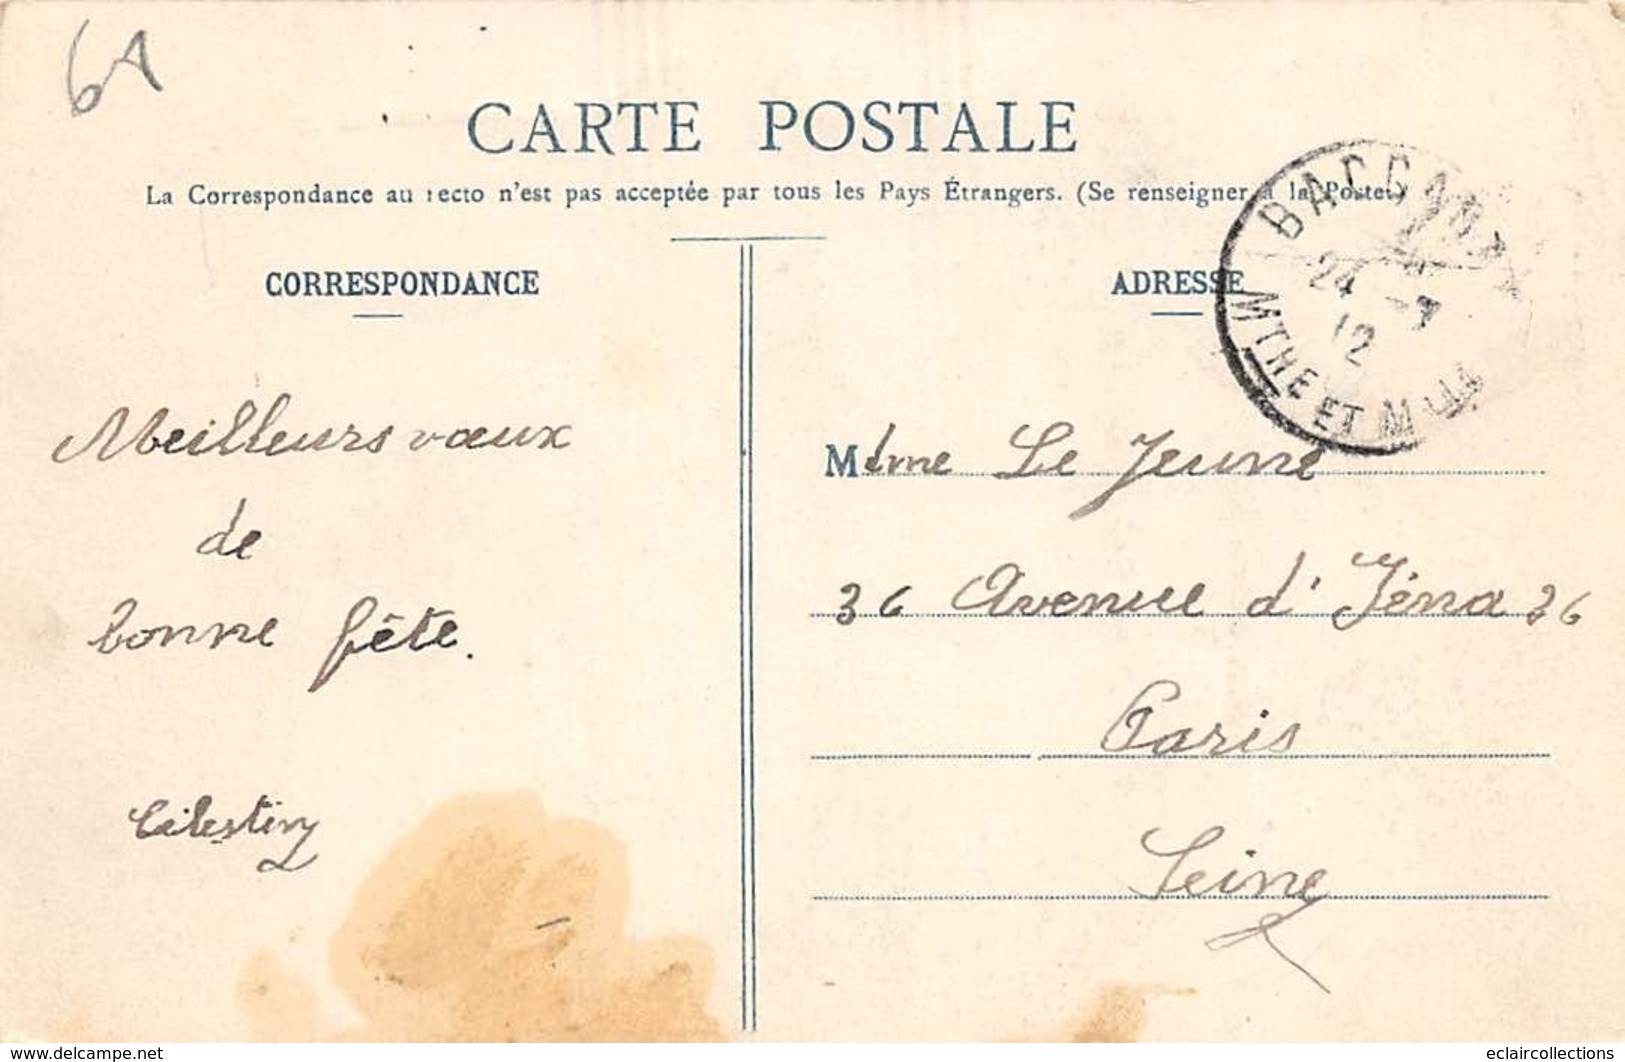 61
CARTE POSTALE
La Correspondance au recto n'est pas acceptée par tous les Pays Étrangers. (Se renseigner à la Poste.)
CORRESPONDANCE
ADRESSE
BACCARAT
24 -7
12
MTHE ET M
Meilleurs vœux
de
bonne fête.
Célestin
Mdme Le Jeune
36 Avenue d'Iéna 36
Paris
Seine
www.delcampe.net
eclaircollections